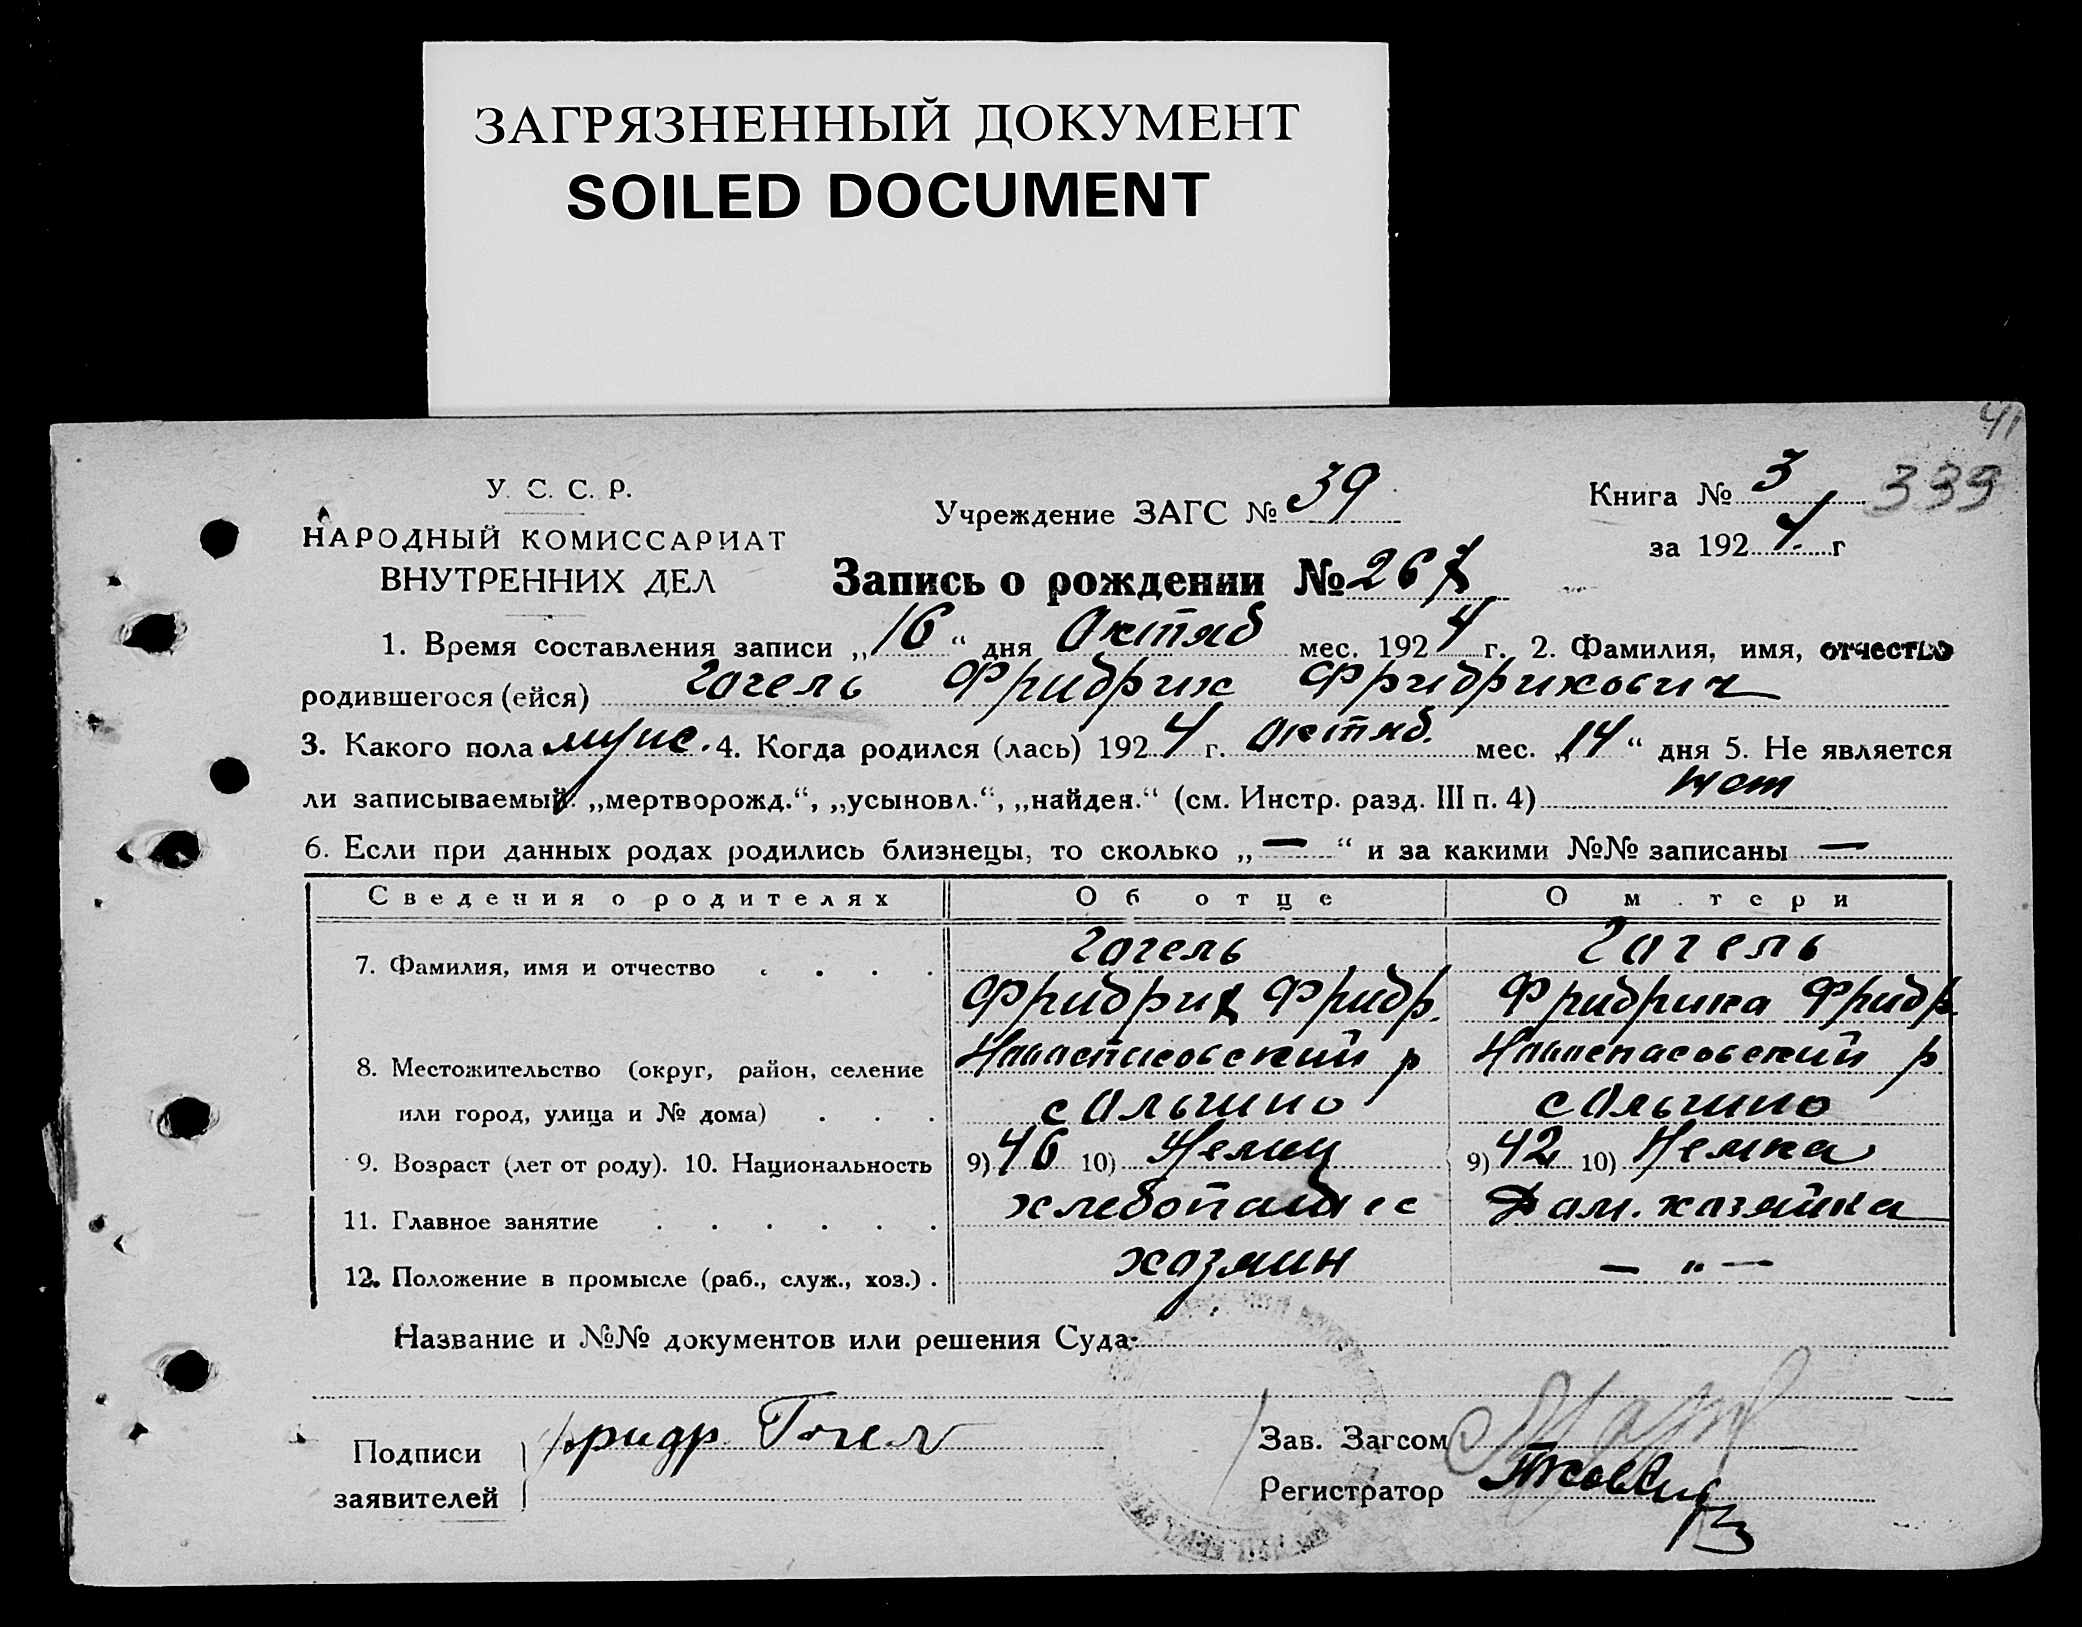 ЗАГРЯЗНЕННЫЙ ДОКУМЕНТ
SOILED DOCUMENT
41
У. С. С. Р.
НАРОДНЫЙ КОМИССАРИАТ
ВНУТРЕННИХ ДЕЛ
Учреждение ЗАГС № 39
Книга № 3 339
за 1924 г
Запись о рождении № 267
1. Время составления записи „16“ дня Октяб мес. 1924 г. 2. Фамилия, имя, отчество
родившегося (ейся) Гогель Фридрих Фридрихович
3. Какого пола муж. 4. Когда родился (лась) 1924 г. Октяб. мес. „14“ дня 5. Не является
ли записываемый: „мертворожд.“, „усыновл.“, „найден.“ (см. Инстр. разд. III п. 4) нет
6. Если при данных родах родились близнецы, то сколько „—“ и за какими №№ записаны —
Сведения о родителях Об отце О м.тери
7. Фамилия, имя и отчество . . . . Гогель Гогель
Фридрих Фридр. Фридрика Фридр.
8. Местожительство (округ, район, селение р р
или город, улица и № дома) . . . с Ольгино с Ольгино
9. Возраст (лет от роду). 10. Национальность 9) 46 10) Немец 9) 42 10) Немка
11. Главное занятие . . . . . . хлебопашес Дом. хозяйка
12. Положение в промысле (раб., служ., хоз.) . хозяин — „ —
Название и №№ документов или решения Суда:
Подписи Фридр Гогел
заявителей
Зав. Загсом
Регистратор